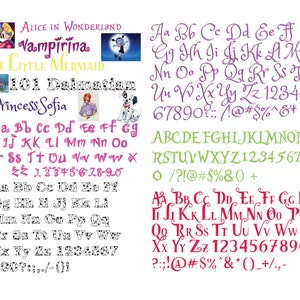 ALICE IN WONDERLAND
Vampirina
LITTLE MERMAID
101 Dalmatian
Princess Sofia
Aa Bb Cc Dd Ee Ff Gg
Mm Nn Oo
Tt Uu Vv Ww X
1 2 3 4 5 6 7 8 9 0
Aa Bb Cc Dd Ee Ff
Mm Nn Oo Pp Qq
Rr Ss Tt Uu Vv Ww
Xx Yy Zz 1234567
890?:;.,/-()!
Aa Bb Cc Dd Ee Ff
Gg Hh Ii Jj Kk Ll Mm
Nn Oo Pp Qq Rr Ss Tt
Uu Vv Ww Xx Yy Zz 12345
67890?:;!@#$%^&*
ABCDEFGHIJKLMNO
RSTUVWXYZ1234567
0 /?!@#$%&() +
Aa Bb Cc Dd Ee Ff Gg Hh
Ii Jj Kk Ll Mm Nn Oo Pp
Qq Rr Ss Tt Uu Vv Ww
Xx Yy Zz 1234567890
?:;!@#$%^&*() _+/.,-